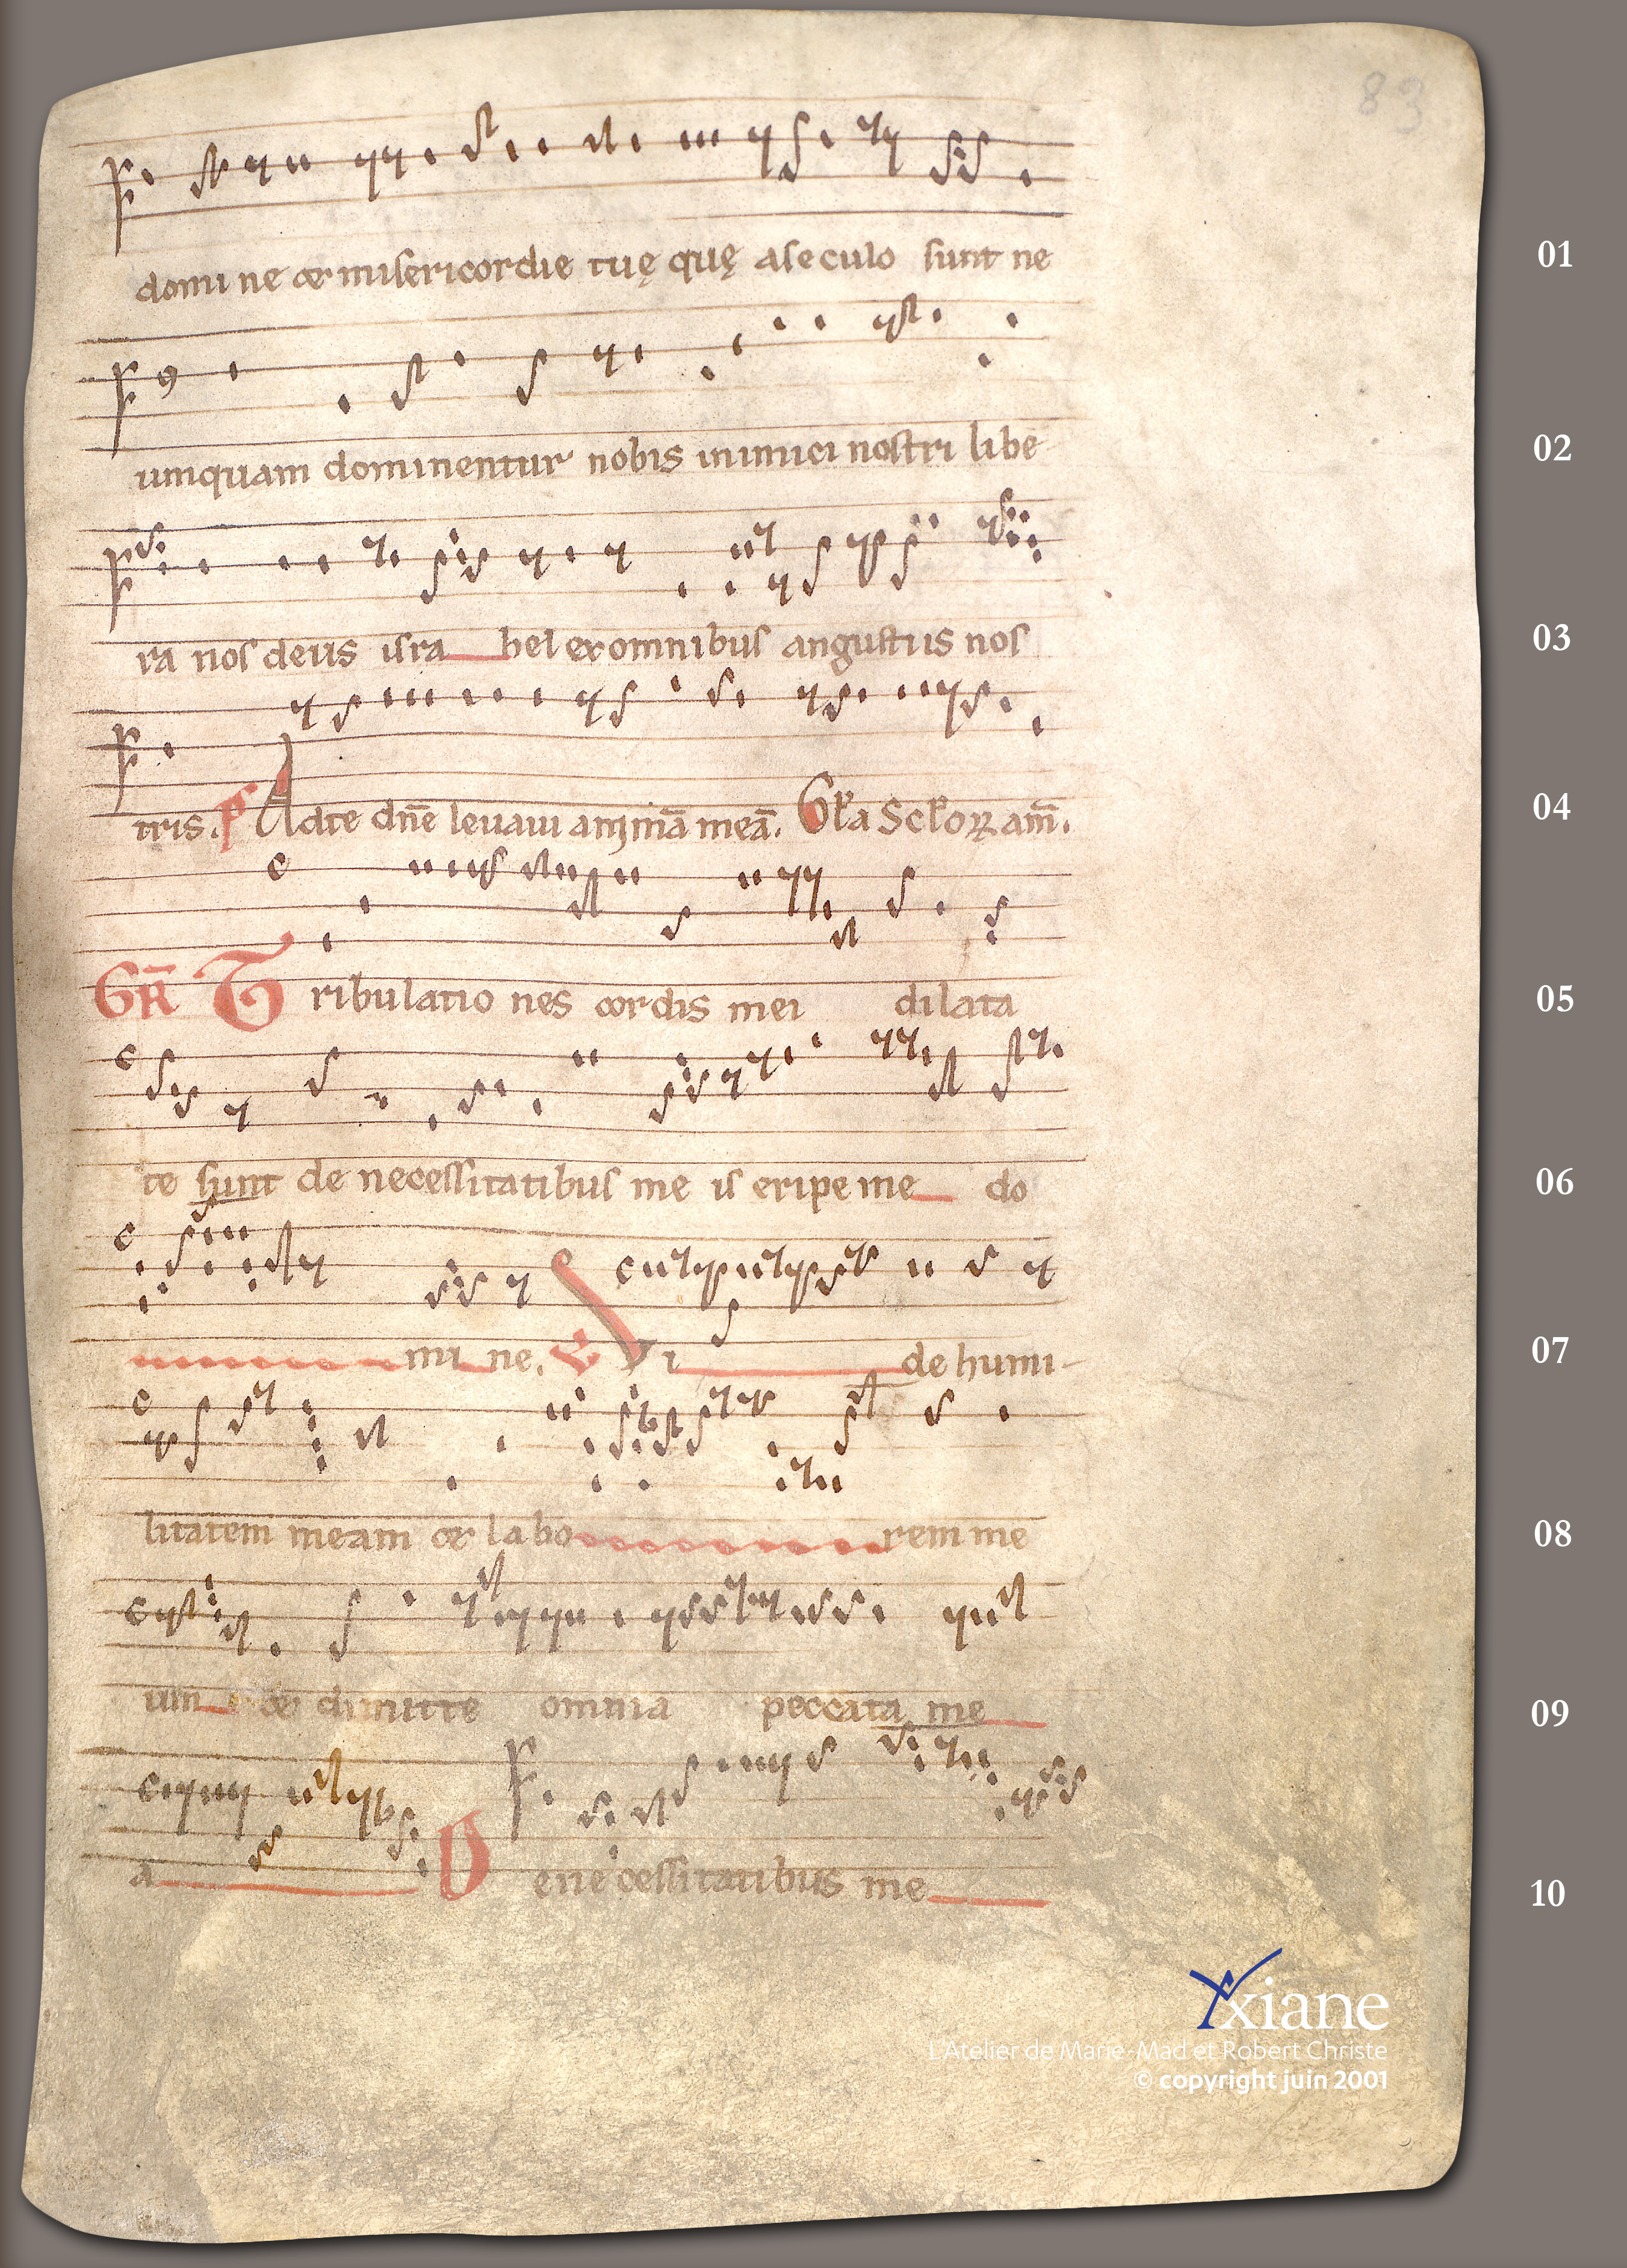 83
domine et misericordie tuę quę aseculo sunt ne
01
umquam dominentur nobis inimici nostri libe
02
ra nos deus isra hel exomnibus angustiis nos
03
tris. P Adte dñe leuaui animã meã. Gła Scłoꝝ am̃.
04
GR̃ Tribulatio nes cordis mei dilata
05
te sunt de necessitatibus me is eripe me do
06
mi ne. V Vi de humi-
07
litatem meam et labo rem me
08
um et dimitte omnia peccata me
09
a De necessitatibus me
10
Yxiane
L'Atelier de Marie-Mad et Robert Christe
© copyright juin 2001